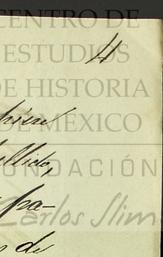 CENTRO DE
4
ESTUDIOS
DE HISTORIA
DE MÉXICO
FUNDACIÓN
pa-
Carlos Slim
de